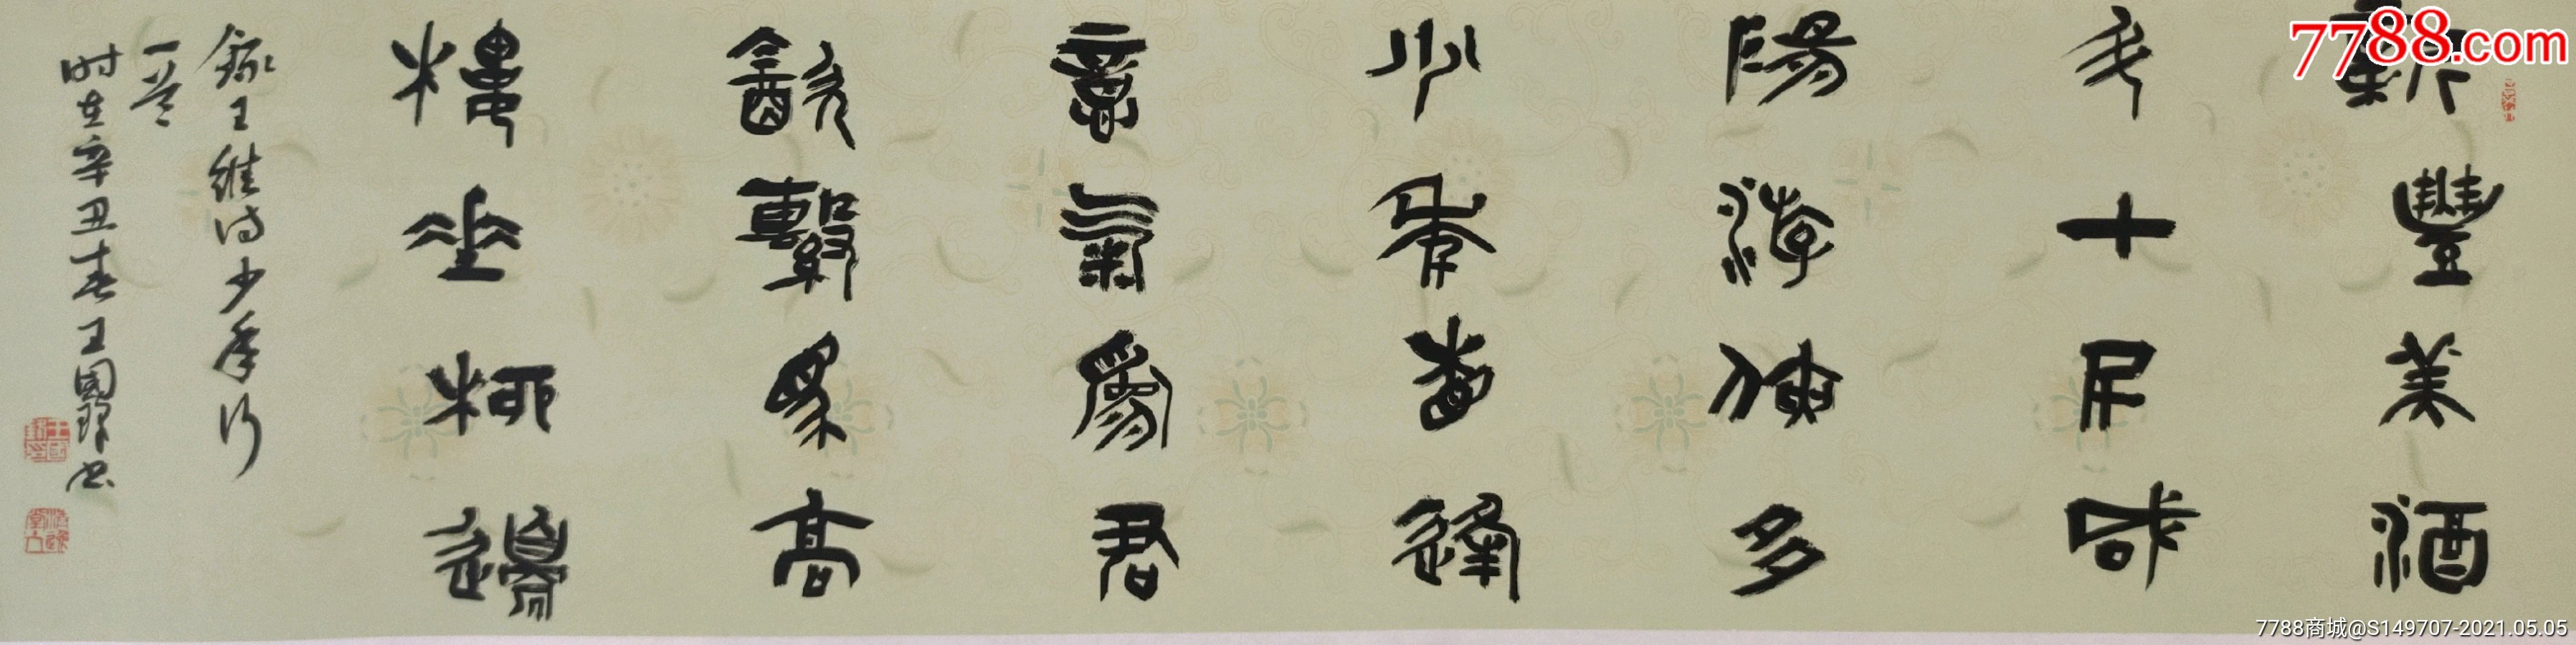 新豐美酒
斗十千咸
陽游俠多
少年相逢
意氣為君
飲繫馬高
樓垂柳邊
錄王維诗少年行
一首
时在辛丑春王國书
7788.com
7788商城@S149707-2021.05.05